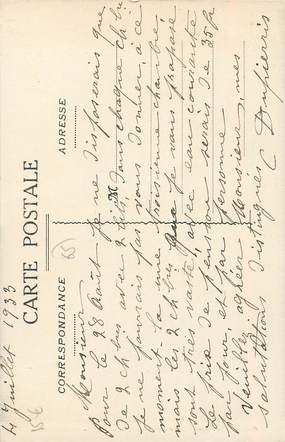 4 Juillet 1933
CARTE POSTALE
CORRESPONDANCE
ADRESSE
Monsieur
Pour le 28 Août je ne disposerais que
de 2 ch bres avec 2 lits dans chaque ch bre
je ne saurais pas vous donner, à ce
moment-là une troisième chambre,
mais les 2 ch bres que je vous propose
sont très vastes, avec eau courante
Le prix de pension serais de 35 f
par jour, et par personne
Veuillez agréer Monsieur, mes
salutations distinguées